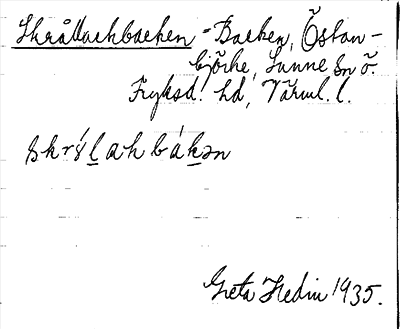 Skrållackbacken - Backen, Östan-
björke, Sunne sn ö.
Fryksd. hd, Värml. l.
skrålakbákən
Greta Hedin 1935.